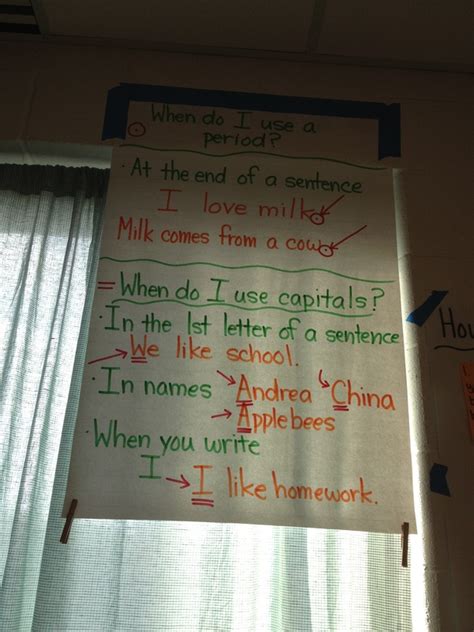 When do I use a
period?
· At the end of a sentence
I love milk.
Milk comes from a cow.
= When do I use capitals?
· In the 1st letter of a sentence
→ We like school.
· In names → Andrea → China
→ Applebees
· When you write
I → I like homework.